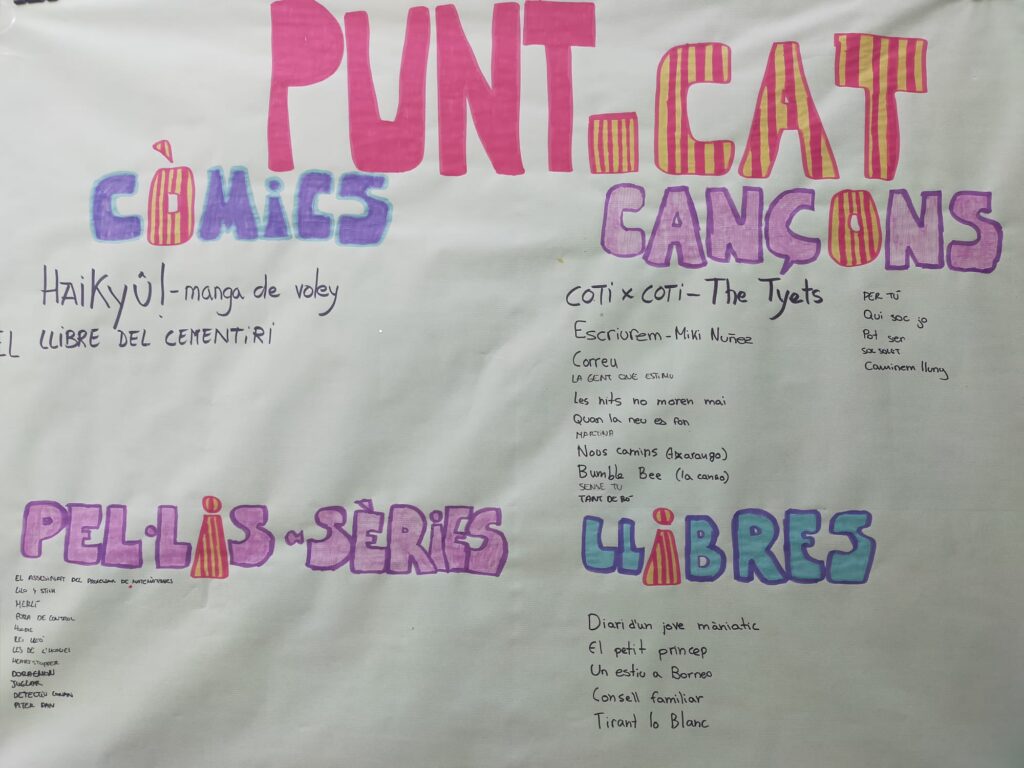 PUNT.CAT
CÒMICS
HAIKYÛ! - manga de voley
EL LLIBRE DEL CEMENTIRI
CANÇONS
COTI x COTI - The Tyets
Escriurem - Miki Nuñez
Correu
LA GENT QUE ESTIMU
Les hits no moren mai
Quan la neu es fon
MARTINA
Nous camins (Txarango)
Bumble Bee (la canso)
SENSE TU
TANT DE BÓ
PER TÚ
Qui soc jo
Pot ser
SOC SOLET
Caminem lluny
PEL·LIS - SÈRIES
EL ASSESINAT DEL PROFESSOR DE MATEMÀTIQUES
LILO Y STICH
MERLÍ
FORA DE CONTROL
REI LLEÓ
LES DE L'HOQUEI
HEARTSTOPPER
DORAEMON
DETECTIU CONAN
PITER PAN
LLIBRES
Diari d'un jove màniatic
El petit princep
Un estiu a Borneo
Consell familiar
Tirant lo Blanc